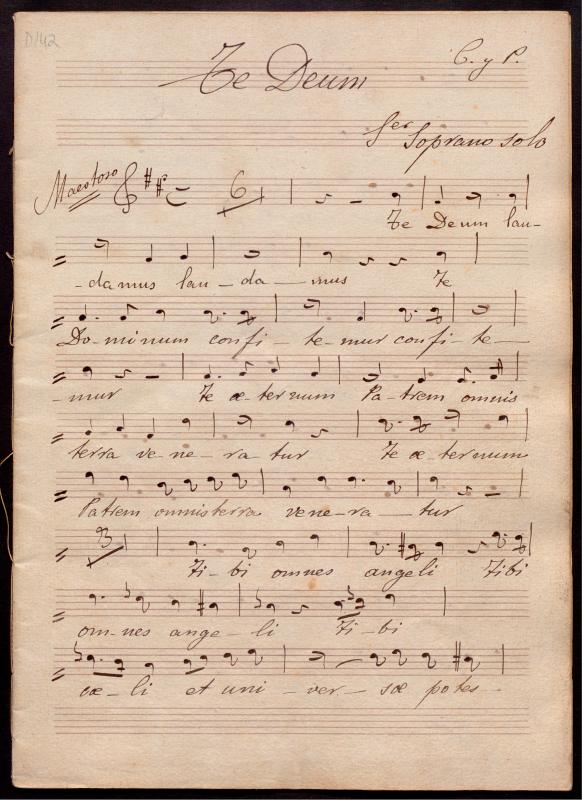 D/42
Te Deum
C. y P.
1er Soprano solo
Maestoso
6
Te Deum lau-
-damus lau-da-mus Te
Do-minum confi-te-mur confi-te-
-mur Te æ-ternum Pa-trem omnis
terra ve-ne-ra-tur Te æ ternum
Patrem omnis terra vene-ra-tur
3
Ti-bi omnes angeli Tibi
om-nes ange-li Ti-bi
cæ-li et uni-ver-sæ potes-